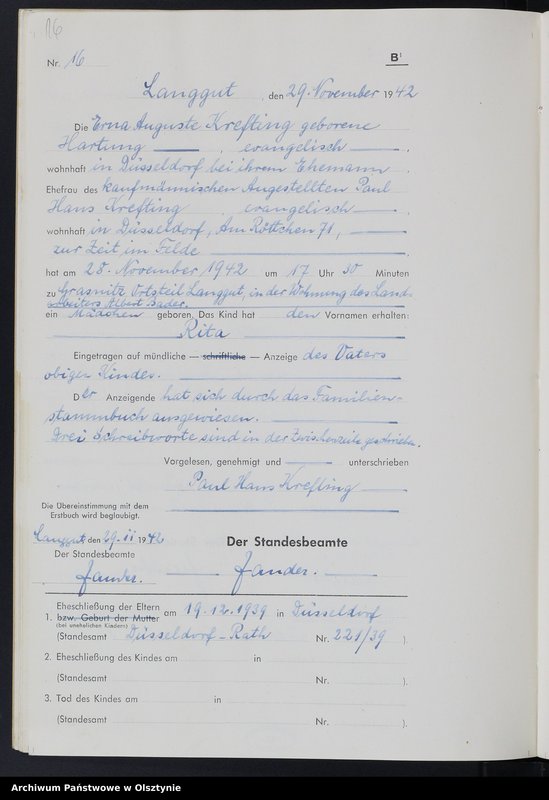 16
Nr. 16
B¹
Langgut, den 29. November 1942
Die Erna Auguste Krefting geborene
Hartung, evangelisch,
wohnhaft in Düsseldorf bei ihrem Ehemann,
Ehefrau des kaufmännischen Angestellten Paul
Hans Krefting, evangelisch,
wohnhaft in Düsseldorf, Am Röttchen 71,
zur Zeit im Felde,
hat am 28. November 1942 um 17 Uhr 30 Minuten
zu Grasnitz Ortsteil Langgut, in der Wohnung des Land-
arbeiters Albert Bader.
ein Mädchen geboren. Das Kind hat den Vornamen erhalten:
Rita
Eingetragen auf mündliche — schriftliche — Anzeige des Vaters
obigen Kindes.
Der Anzeigende hat sich durch das Familien-
stammbuch ausgewiesen.
Drei Schreibworte sind in der Zwischenzeile geschrieben.
Vorgelesen, genehmigt und unterschrieben
Paul Hans Krefting
Die Übereinstimmung mit dem
Erstbuch wird beglaubigt.
Langgut den 29.11 1942
Der Standesbeamte
Der Standesbeamte
Jander.
Jander.
Eheschließung der Eltern
1. bzw. Geburt der Mutter am 19.12.1939 in Düsseldorf
(bei unehelichen Kindern)
(Standesamt Düsseldorf-Rath Nr. 221/39 ).
2. Eheschließung des Kindes am in
(Standesamt Nr. ).
3. Tod des Kindes am in
(Standesamt Nr. ).
Archiwum Państwowe w Olsztynie